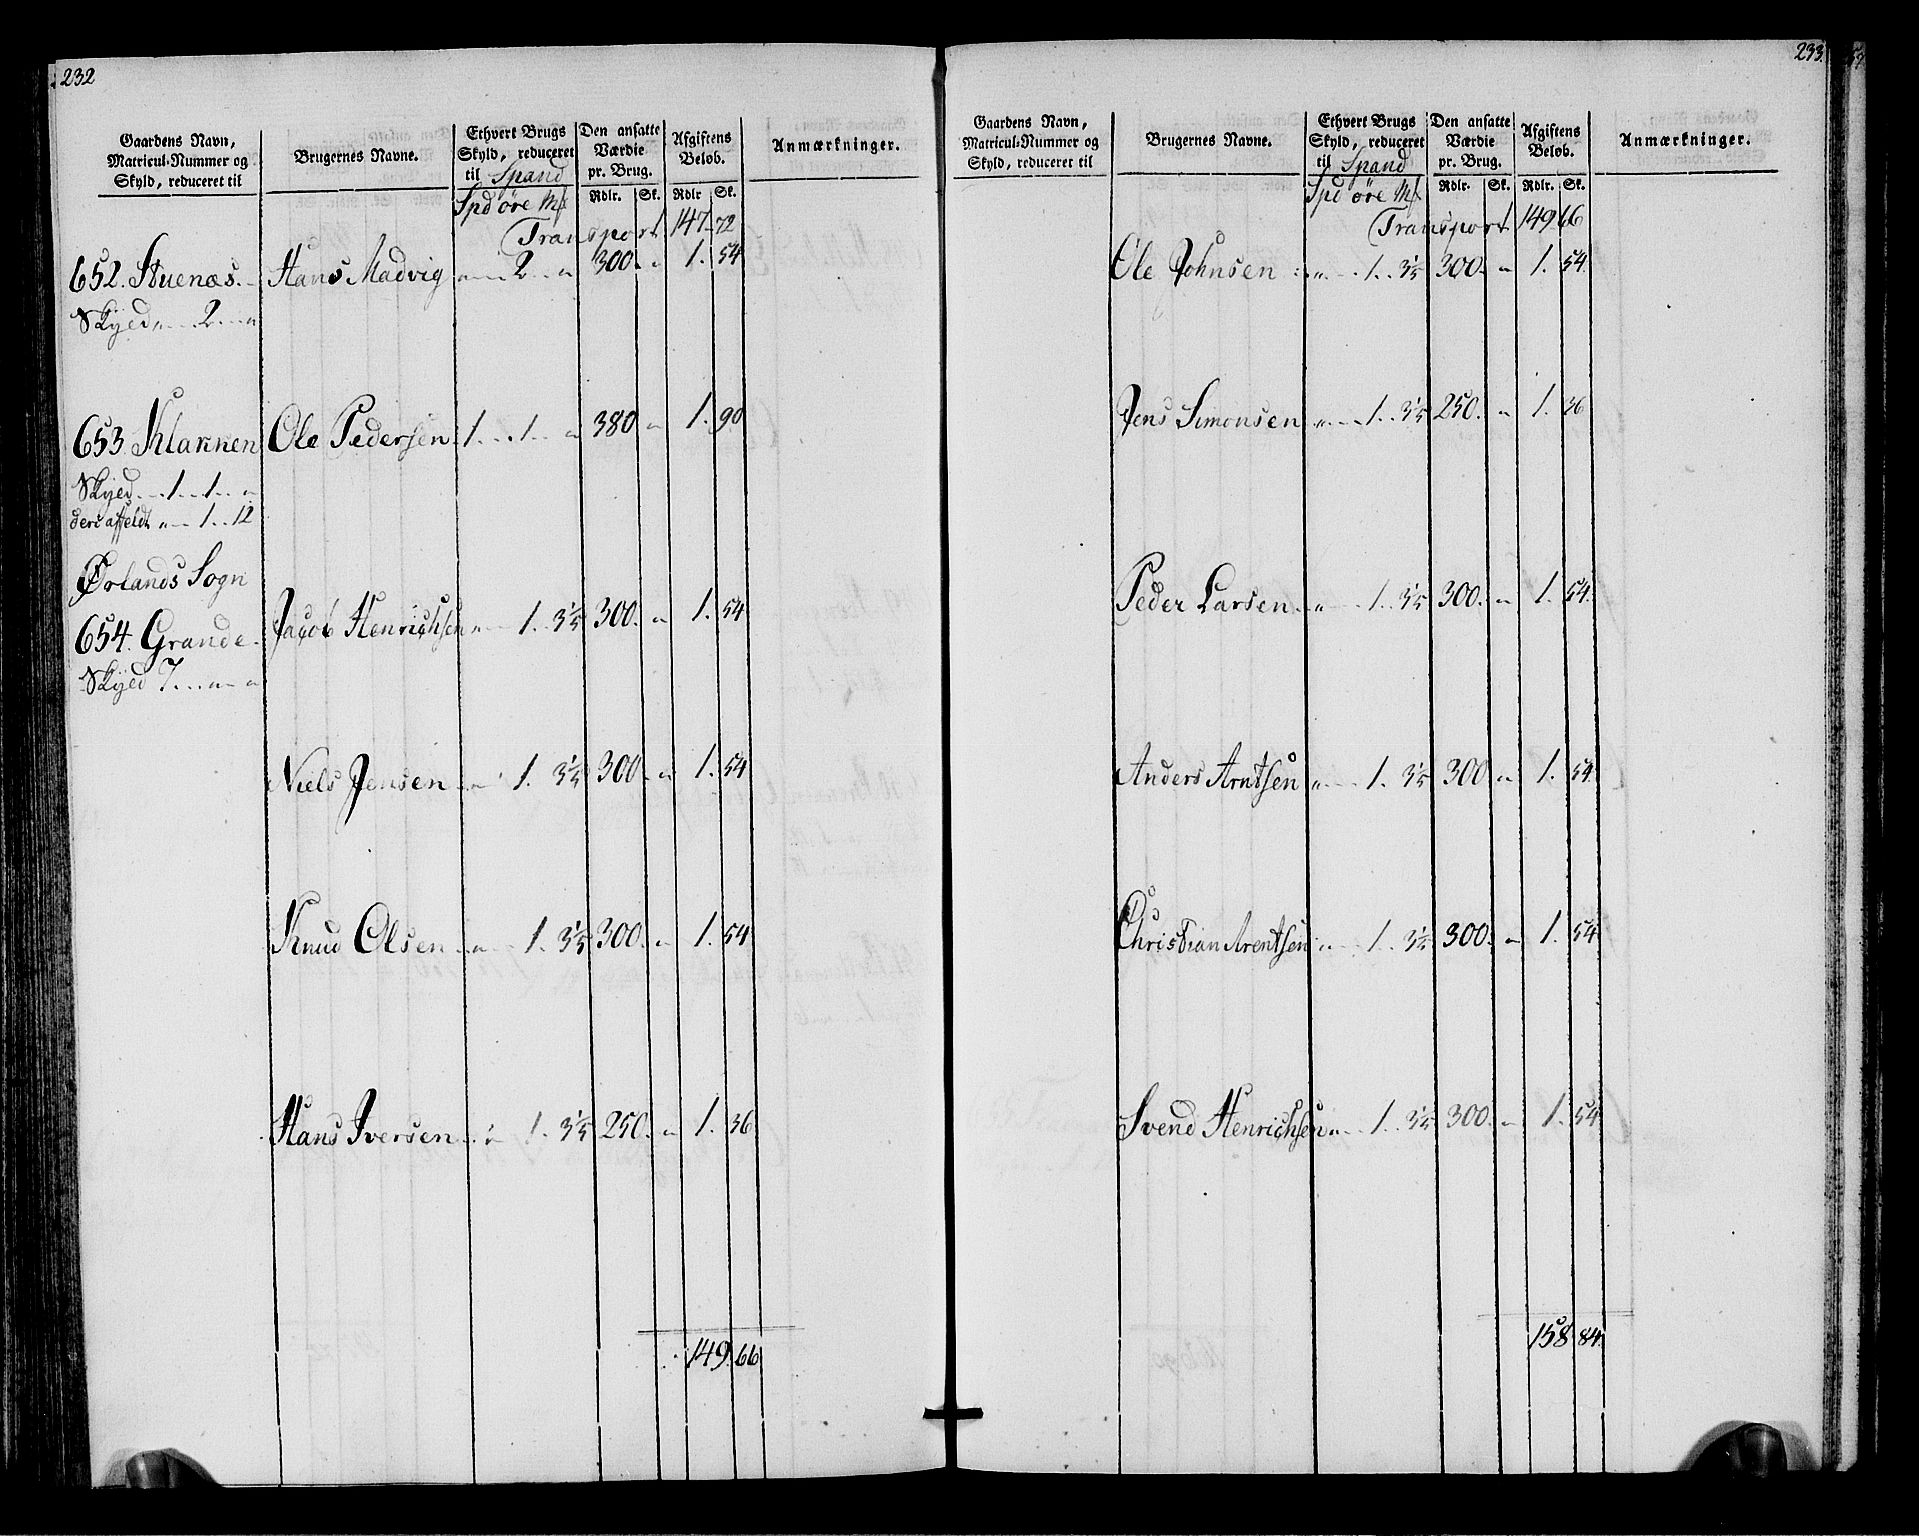 232
Gaardens Navn, Matricul-Nummer og Skyld, reduceret til | Brugernes Navne. | Ethvert Brugs Skyld, reduceret til Spand | Den ansatte Værdie pr. Brug. | Afgiftens Beløb. | Anmærkninger.
Spd øre Mf | Rdlr. | Sk. | Rdlr | Sk.
Transport 147 72
652. Stuenæs. Hans Madvig " 2 " 300. " 1. 54
Skyld " 2 "
653. Klakken Ole Pedersen 1. 1. " 380 " 1. 90
Skyld 1. 1. "
deraf " 1. 12
Ørlands Sogn
654. Grande Jacob Henrichsen " 1. 3 1/5 300. " 1. 54
Skyld 7. " "
Niels Jensen " 1. 3 1/5 300. " 1. 54
Knud Olsen " 1. 3 1/5 300. " 1. 54
Hans Iversen " 1. 3 1/5 250. " 1. 36
149. 66
233.
Gaardens Navn, Matricul-Nummer og Skyld, reduceret til | Brugernes Navne. | Ethvert Brugs Skyld, reduceret til Spand | Den ansatte Værdie pr. Brug. | Afgiftens Beløb. | Anmærkninger.
Spd øre Mf | Rdlr. | Sk. | Rdlr. | Sk.
Transport 149 66
Ole Johnsen " 1. 3 1/5 300. " 1. 54
Jens Simonsen " 1. 3 1/5 250. " 1. 36
Peder Larsen " 1. 3 1/5 300. " 1. 54
Anders Arntsen " 1. 3 1/5 300 " 1. 54
Christian Arentsen " 1. 3 1/5 300. " 1. 54
Svend Henrichsen " 1. 3 1/5 300. " 1. 54
158 84